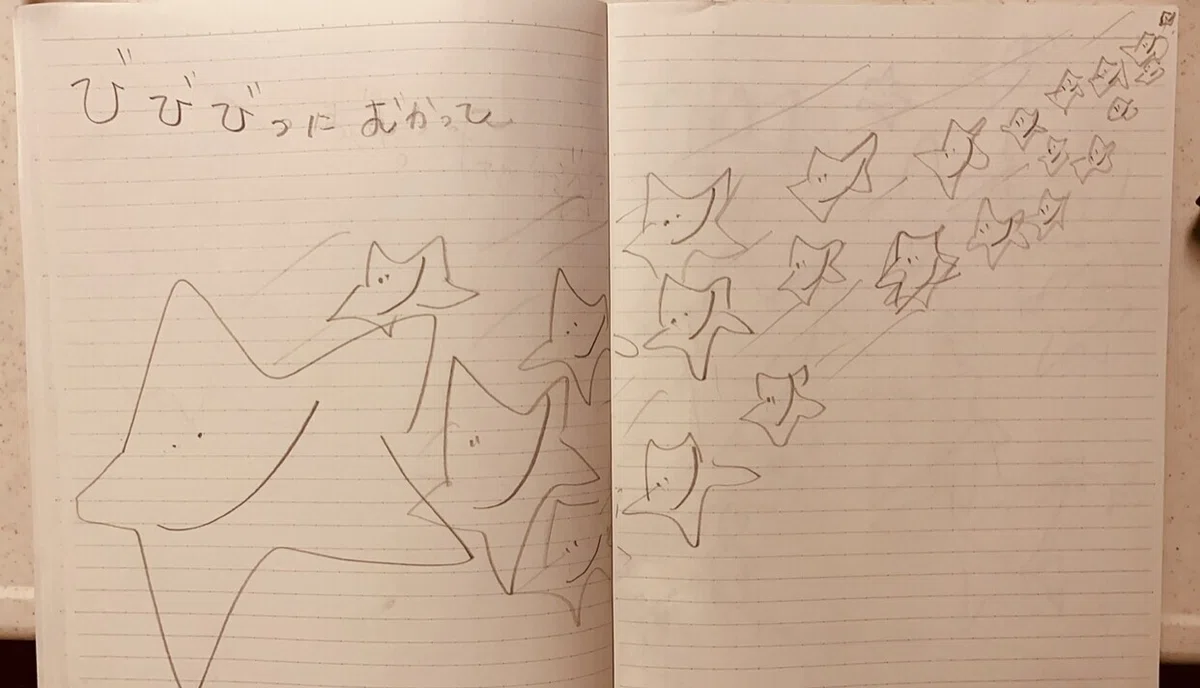 びびびっに むかって